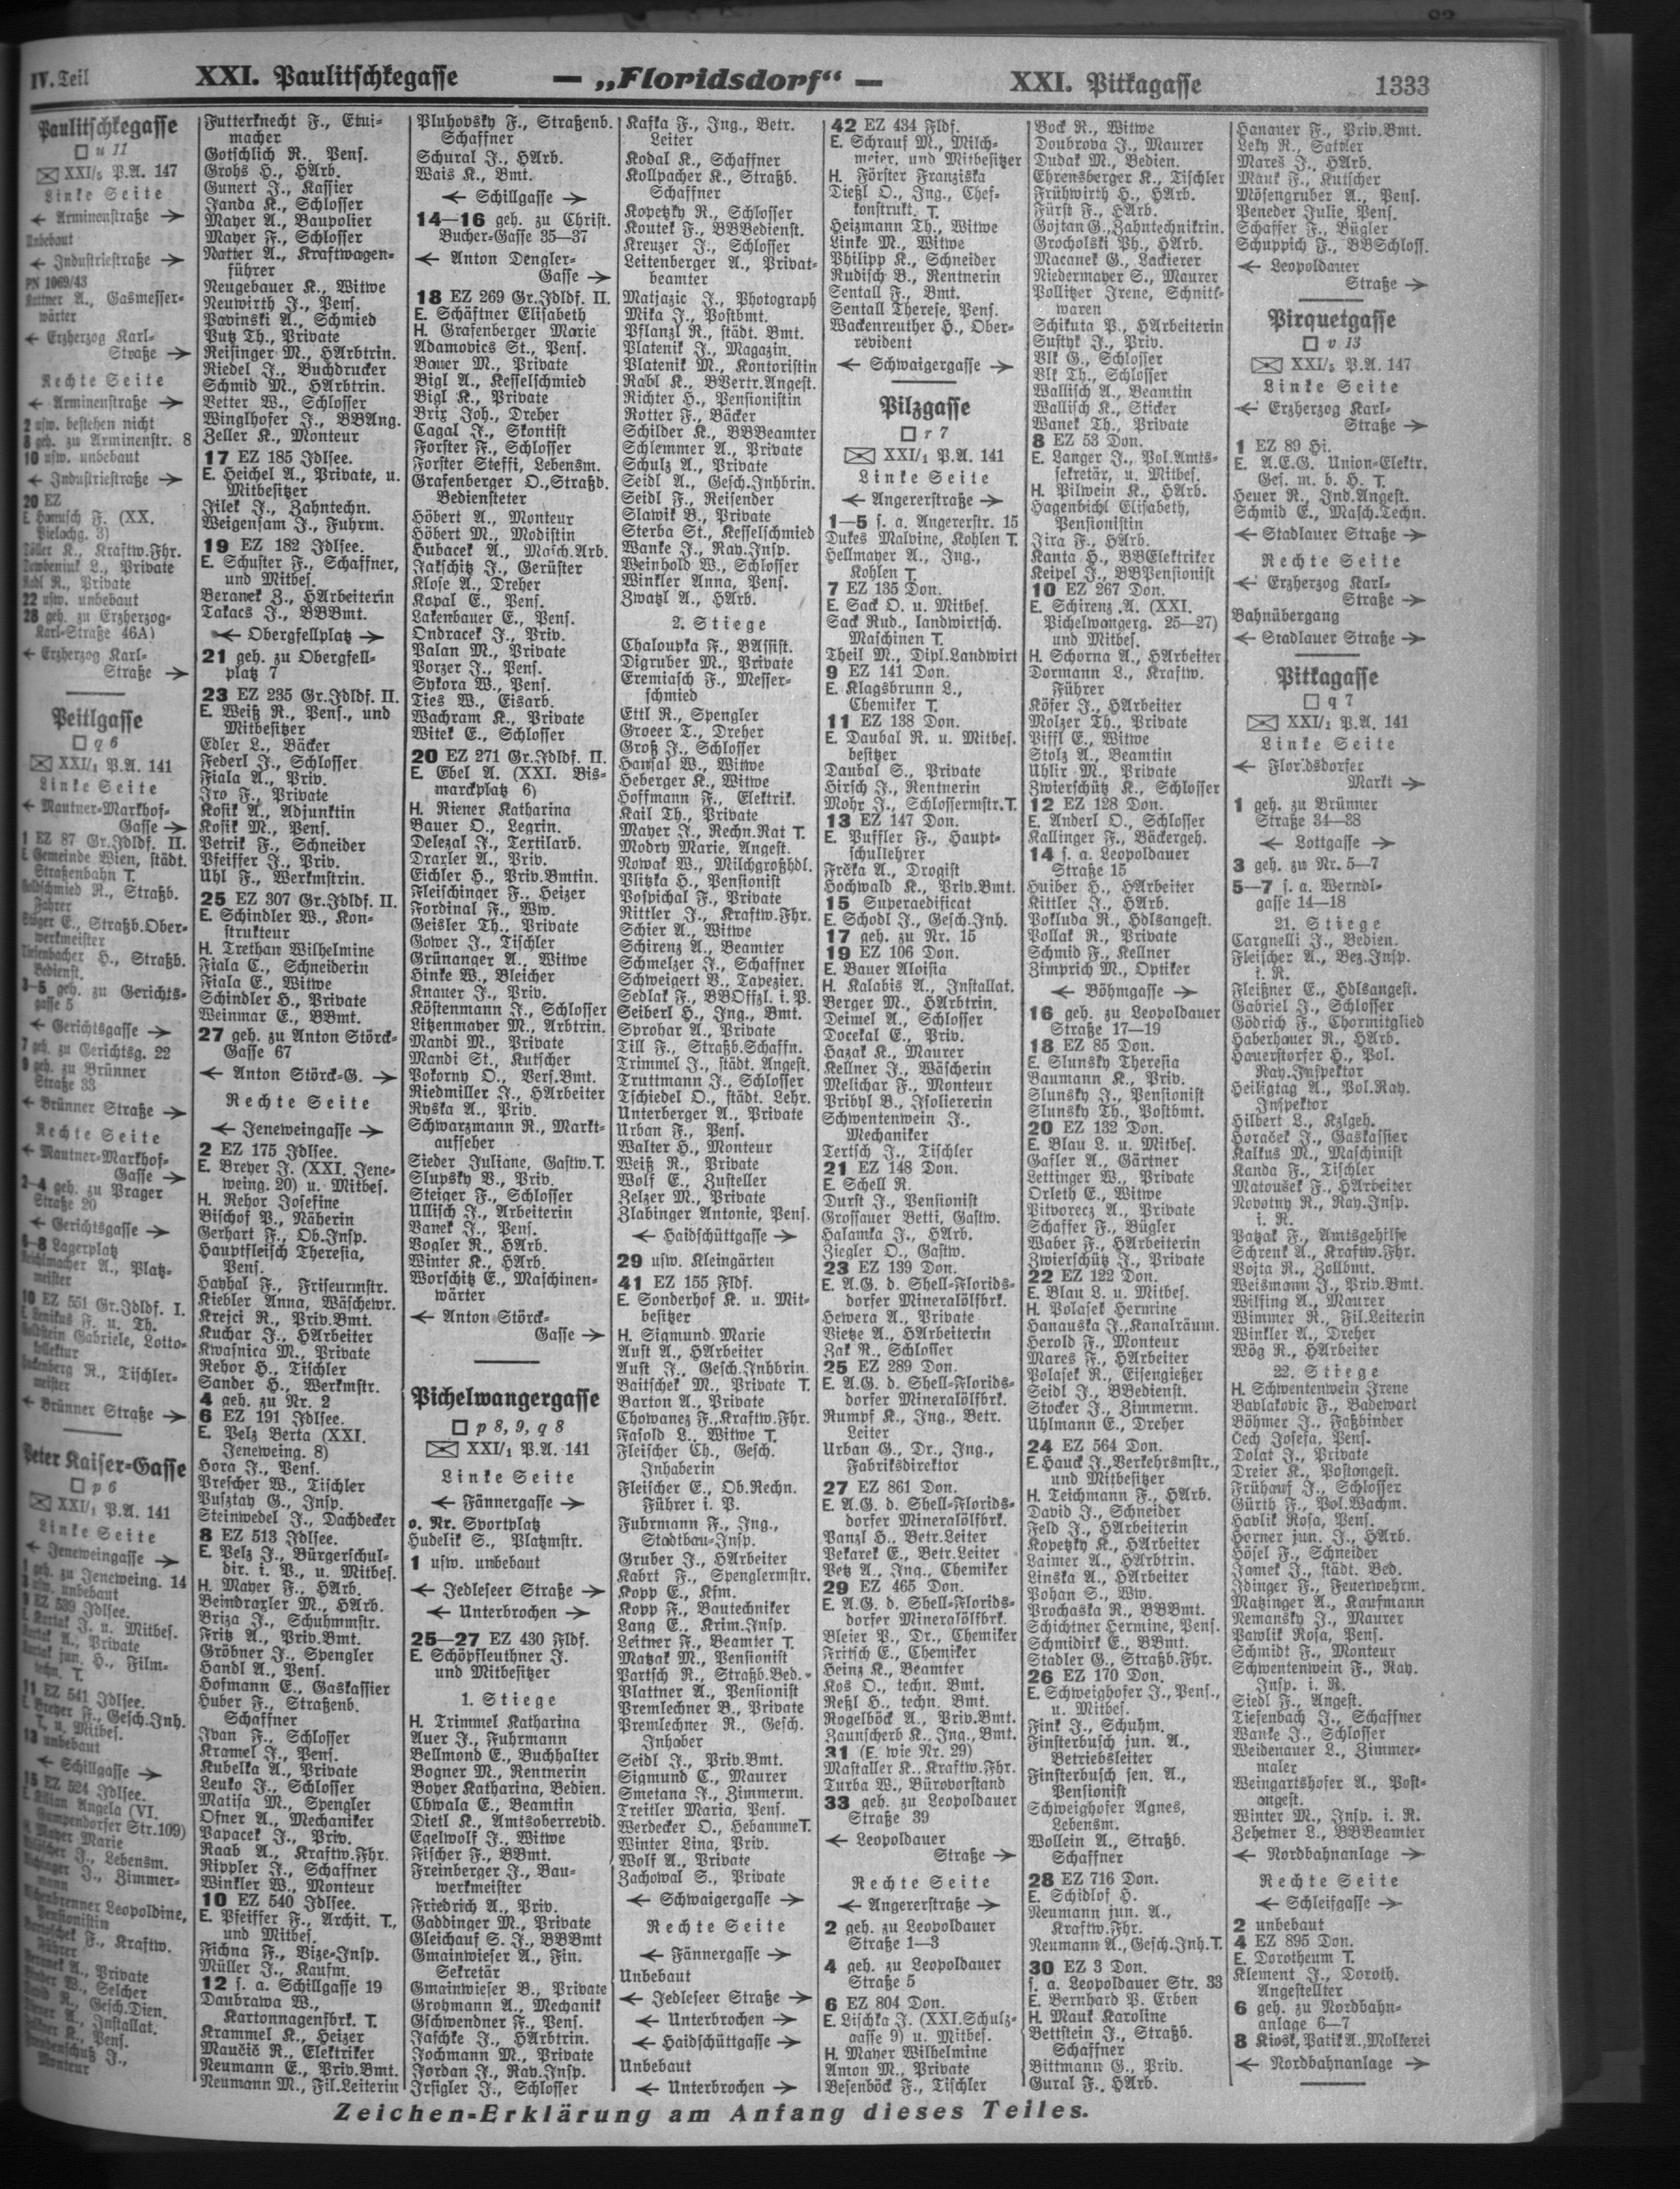 IV. Teil
XXI. Paulitschkegasse
— „Floridsdorf“ —
XXI. Pitkagasse
1333
Paulitschkegasse
□ u 11
XXI/5 P.A. 147
Linke Seite
← Arminenstraße →
Unbebaut
← Industriestraße →
PN 1069/43
Kuttner A., Gasmesser-
wärter
← Erzherzog Karl-
Straße →
Rechte Seite
← Arminenstraße →
2 usw. bestehen nicht
8 geh. zu Arminenstr. 8
10 usw. unbebaut
← Industriestraße →
20 EZ
E. Hanusch F. (XX.
Kraftw.Fhr.
Private
Private
22 usw. unbebaut
28 geh. zu Erzherzog-
Karl-Straße 46A)
← Erzherzog Karl-
Straße →
Peitlgasse
□ q 6
XXI/1 P.A. 141
Linke Seite
← Mautner-Markhof-
Gasse →
1 EZ 87 Gr.Jdldf. II.
E. Gemeinde Wien, städt.
Straßenbahn T.
Goldschmied R., Straßb.
Fahrer
Straßb.Ober-
werkmeister
H., Straßb.
Bedienst.
3—5 geh. zu Gerichts-
gasse 5
← Gerichtsgasse →
7 geh. zu Gerichtsg. 22
9 geh. zu Brünner
Straße 33
← Brünner Straße →
Rechte Seite
← Mautner-Markhof-
Gasse →
2—4 geh. zu Prager
Straße 20
← Gerichtsgasse →
6—8 Lagerplatz
A., Platz-
meister
10 EZ 551 Gr.Jdldf. I.
F. u. Th.
Goldstein Gabriele, Lotto-
kollektur
R., Tischler-
meister
← Brünner Straße →
Peter Kaiser-Gasse
□ p 6
XXI/1 P.A. 141
Linke Seite
← Jeneweingasse →
1 geh. zu Jeneweing. 14
3 usw. unbebaut
9 EZ 539 Jdlsee.
J. u. Mitbes.
A., Private
jun. H., Film-
techn. T.
11 EZ 541 Jdlsee.
E. Breyer F., Gesch.Inh.
T. u. Mitbes.
13 unbebaut
← Schillgasse →
15 EZ 524 Jdlsee.
E. Kilian Angela (VI.
Gumpendorfer Str.109)
H. Mayer Marie
J., Lebensm.
J., Zimmer-
mann
Leopoldine,
Pensionistin
F., Kraftw.
Führer
A., Private
W., Selcher
R., Gesch.Dien.
A., Installat.
K., Pens.
J.,
Monteur
Futterknecht F., Etui-
macher
Gotschlich R., Pens.
Grohs H., HArb.
Gunert J., Kassier
Janda K., Schlosser
Mayer A., Baupolier
Mayer F., Schlosser
Natter A., Kraftwagen-
führer
Neugebauer K., Witwe
Neuwirth J., Pens.
Pavinski A., Schmied
Putz Th., Private
Reisinger M., HArbtrin.
Riedel J., Buchdrucker
Schmid M., HArbtrin.
Vetter W., Schlosser
Winglhofer J., BBAng.
Zeller K., Monteur
17 EZ 185 Jdlsee.
E. Heichel A., Private, u.
Mitbesitzer
Jilek J., Zahntechn.
Weigensam J., Fuhrm.
19 EZ 182 Jdlsee.
E. Schuster F., Schaffner,
und Mitbes.
Beranek Z., HArbeiterin
Takacs J., BBBmt.
← Obergfellplatz →
21 geh. zu Obergfell-
platz 7
23 EZ 235 Gr.Jdldf. II.
E. Weiß R., Pens., und
Mitbesitzer
Edler L., Bäcker
Federl J., Schlosser
Fiala A., Priv.
Jro F., Private
Kosik A., Adjunktin
Kosik M., Pens.
Petrik F., Schneider
Pfeiffer J., Priv.
Uhl F., Werkmstrin.
25 EZ 307 Gr.Jdldf. II.
E. Schindler W., Kon-
strukteur
H. Trethan Wilhelmine
Fiala C., Schneiderin
Fiala E., Witwe
Schindler H., Private
Weinmar E., BBmt.
27 geh. zu Anton Störck-
Gasse 67
← Anton Störck-G. →
Rechte Seite
← Jeneweingasse →
2 EZ 175 Jdlsee.
E. Breyer J. (XXI. Jene-
weing. 20) u. Mitbes.
H. Rehor Josefine
Bischof P., Näherin
Gerhart F., Ob.Insp.
Hauptfleisch Theresia,
Pens.
Hayhal F., Friseurmstr.
Kiebler Anna, Wäschewr.
Krejci R., Priv.Bmt.
Kuchar J., HArbeiter
Kwasnica M., Private
Rehor H., Tischler
Sander H., Werkmstr.
4 geh. zu Nr. 2
6 EZ 191 Jdlsee.
E. Pelz Berta (XXI.
Jeneweing. 8)
Hora J., Pens.
Prescher W., Tischler
Pusztay G., Insp.
Steinwedel J., Dachdecker
8 EZ 513 Jdlsee.
E. Pelz J., Bürgerschul-
dir. i. P., u. Mitbes.
H. Mayer F., HArb.
Beindraxler M., HArb.
Briza J., Schuhmmstr.
Fritz A., Priv.Bmt.
Gröbner J., Spengler
Handl A., Pens.
Hofmann E., Gaskassier
Huber F., Straßenb.
Schaffner
Ivan F., Schlosser
Kramel J., Pens.
Kubelka A., Private
Leuko J., Schlosser
Matisa M., Spengler
Ofner A., Mechaniker
Papacek J., Priv.
Raab A., Kraftw.Fhr.
Rippler J., Schaffner
Winkler W., Monteur
10 EZ 540 Jdlsee.
E. Pfeiffer F., Archit. T.,
und Mitbes.
Fichna F., Vize-Insp.
Müller J., Kaufm.
12 s. a. Schillgasse 19
Daubrawa W.,
Kartonnagenfbrk. T.
Krammel K., Heizer
Maučič R., Elektriker
Neumann E., Priv.Bmt.
Neumann M., Fil.Leiterin
Pluhovsky F., Straßenb.
Schaffner
Schural J., HArb.
Wais K., Bmt.
← Schillgasse →
14—16 geh. zu Christ.
Bucher-Gasse 35—37
← Anton Dengler-
Gasse →
18 EZ 269 Gr.Jdldf. II.
E. Schäftner Elisabeth
H. Grafenberger Marie
Adamovics St., Pens.
Bauer M., Private
Bigl A., Kesselschmied
Bigl K., Private
Brix Joh., Dreher
Cagal J., Skontist
Forster F., Schlosser
Forster Steffi, Lebensm.
Grafenberger O.,Straßb.
Bediensteter
Höbert A., Monteur
Höbert M., Modistin
Hubacek A., Masch.Arb.
Jakschitz J., Gerüster
Klose A., Dreher
Kopal E., Pens.
Lakenbauer E., Pens.
Ondracek J., Priv.
Palan M., Private
Porzer J., Pens.
Sykora W., Pens.
Ties W., Eisarb.
Wachram K., Private
Witek E., Schlosser
20 EZ 271 Gr.Jdldf. II.
E. Ebel A. (XXI. Bis-
marckplatz 6)
H. Riener Katharina
Bauer O., Legrin.
Delezal J., Textilarb.
Draxler A., Priv.
Eichler H., Priv.Bmtin.
Fleischinger F., Heizer
Fordinal F., Ww.
Geisler Th., Private
Gower J., Tischler
Grünanger A., Witwe
Hinke W., Bleicher
Knauer J., Priv.
Köstenmann J., Schlosser
Litzenmayer M., Arbtrin.
Mandi M., Private
Mandi St., Kutscher
Pokorny O., Vers.Bmt.
Riedmiller J., HArbeiter
Ryska A., Priv.
Schwarzmann R., Markt-
aufseher
Sieder Juliane, Gastw.T.
Slupsky B., Priv.
Steiger F., Schlosser
Ullisch J., Arbeiterin
Vanek J., Pens.
Vogler R., HArb.
Winter K., HArb.
Worschitz E., Maschinen-
wärter
← Anton Störck-
Gasse →
Pichelwangergasse
□ p 8, 9, q 8
XXI/1 P.A. 141
Linke Seite
← Fännergasse →
o. Nr. Sportplatz
Hudelik S., Platzmstr.
1 usw. unbebaut
← Jedleseer Straße →
← Unterbrochen →
25—27 EZ 430 Fldf.
E. Schöpfleuthner J.
und Mitbesitzer
1. Stiege
H. Trimmel Katharina
Auer J., Fuhrmann
Bellmond E., Buchhalter
Bogner M., Rentnerin
Boyer Katharina, Bedien.
Chwala E., Beamtin
Dietl K., Amtsoberrevid.
Egelwolf J., Witwe
Fischer F., BBmt.
Freinberger J., Bau-
werkmeister
Friedrich A., Priv.
Gaddinger M., Private
Gleichauf S. J., BBBmt
Gmainwieser A., Fin.
Sekretär
Gmainwieser B., Private
Grohmann A., Mechanik
Gschwendner F., Pens.
Jaschke J., HArbtrin.
Jochmann M., Private
Jordan J., Ray.Insp.
Irsigler J., Schlosser
Kafka F., Ing., Betr.
Leiter
Kodal K., Schaffner
Kollpacher K., Straßb.
Schaffner
Kopetzky R., Schlosser
Koutek F., BBBedienst.
Kreuzer J., Schlosser
Leitenberger A., Privat-
beamter
Matjazic J., Photograph
Mika J., Postbmt.
Pflanzl R., städt. Bmt.
Platenik J., Magazin.
Platenik M., Kontoristin
Rabl K., BVertr.Angest.
Richter H., Pensionistin
Rotter F., Bäcker
Schilder K., BBBeamter
Schlemmer A., Private
Schulz A., Private
Seidl A., Gesch.Inhbrin.
Seidl F., Reisender
Slawik B., Private
Sterba St., Kesselschmied
Wanke J., Ray.Insp.
Weinhold W., Schlosser
Winkler Anna, Pens.
Zwatzl A., HArb.
2. Stiege
Chaloupka F., BAssist.
Digruber M., Private
Eremiasch F., Messer-
schmied
Ettl R., Spengler
Groeer T., Dreher
Groß J., Schlosser
Hansal W., Witwe
Heberger K., Witwe
Hoffmann F., Elektrik.
Kail Th., Private
Mayer J., Rechn.Rat T.
Modry Marie, Angest.
Nowak W., Milchgroßhdl.
Plitzka H., Pensionist
Pospichal F., Private
Rittler J., Kraftw.Fhr.
Schier A., Witwe
Schirenz A., Beamter
Schmelzer J., Schaffner
Schweigert V., Tapezier.
Sedlak F., BBOffzl. i. P.
Seiberl H., Ing., Bmt.
Sprobar A., Private
Till F., Straßb.Schaffn.
Trimmel J., städt. Angest.
Truttmann J., Schlosser
Tschiedel O., städt. Lehr.
Unterberger A., Private
Urban F., Pens.
Walter H., Monteur
Weiß R., Private
Wolf E., Zusteller
Zelzer M., Private
Zlabinger Antonie, Pens.
← Haidschüttgasse →
29 usw. Kleingärten
41 EZ 155 Fldf.
E. Sonderhof K. u. Mit-
besitzer
H. Sigmund Marie
Aust A., HArbeiter
Aust J., Gesch.Inhbrin.
Baitschek M., Private T.
Barton A., Private
Chowanez F.,Kraftw.Fhr.
Fasold L., Witwe T.
Fleischer Ch., Gesch.
Inhaberin
Fleischer E., Ob.Rechn.
Führer i. P.
Fuhrmann F., Ing.,
Stadtbau-Insp.
Gruber J., HArbeiter
Kabrt F., Spenglermstr.
Kopp E., Kfm.
Kopp F., Bautechniker
Lang E., Krim.Insp.
Leitner F., Beamter T.
Matzak M., Pensionist
Partsch R., Straßb.Bed.
Plattner A., Pensionist
Premlechner B., Private
Premlechner R., Gesch.
Inhaber
Seidl J., Priv.Bmt.
Sigmund C., Maurer
Smetana J., Zimmerm.
Treitler Maria, Pens.
Werdecker O., HebammeT.
Winter Lina, Priv.
Wolf A., Private
Zachowal S., Private
← Schwaigergasse →
Rechte Seite
← Fännergasse →
Unbebaut
← Jedleseer Straße →
← Unterbrochen →
← Haidschüttgasse →
Unbebaut
← Unterbrochen →
42 EZ 434 Fldf.
E. Schrauf M., Milch-
meier, und Mitbesitzer
H. Förster Franziska
Dießl O., Ing., Chef-
konstrukt. T.
Heizmann Th., Witwe
Linke M., Witwe
Philipp K., Schneider
Rudisch B., Rentnerin
Sentall F., Bmt.
Sentall Therese, Pens.
Wackenreuther H., Ober-
revident
← Schwaigergasse →
Pilzgasse
□ r 7
XXI/1 P.A. 141
Linke Seite
← Angererstraße →
1—5 s. a. Angererstr. 15
Dukes Malvine, Kohlen T.
Hellmayer A., Ing.,
Kohlen T.
7 EZ 135 Don.
E. Sack O. u. Mitbes.
Sack Rud., landwirtsch.
Maschinen T.
Theil M., Dipl.Landwirt
9 EZ 141 Don.
E. Klagsbrunn L.,
Chemiker T.
11 EZ 138 Don.
E. Daubal R. u. Mitbes.
besitzer
Daubal S., Private
Hirsch J., Rentnerin
Mohr J., Schlossermstr.T.
13 EZ 147 Don.
E. Puffler F., Haupt-
schullehrer
Frčka A., Drogist
Hochwald K., Priv.Bmt.
15 Superaedificat
E. Schodl J., Gesch.Inh.
17 geh. zu Nr. 15
19 EZ 106 Don.
E. Bauer Aloisia
H. Kalabis A., Installat.
Berger M., HArbtrin.
Deimel A., Schlosser
Docekal E., Priv.
Hazak K., Maurer
Kellner J., Wäscherin
Melichar F., Monteur
Pribyl B., Isoliererin
Schwentenwein J.,
Mechaniker
Tertsch J., Tischler
21 EZ 148 Don.
E. Schell R.
Durst J., Pensionist
Grossauer Betti, Gastw.
Halamka J., HArb.
Ziegler O., Gastw.
23 EZ 139 Don.
E. A.G. d. Shell-Florids-
dorfer Mineralölfbrk.
Hewera A., Private
Vietze A., HArbeiterin
Zak R., Schlosser
25 EZ 289 Don.
E. A.G. d. Shell-Florids-
dorfer Mineralölfbrk.
Rumpf K., Ing., Betr.
Leiter
Urban G., Dr., Ing.,
Fabriksdirektor
27 EZ 861 Don.
E. A.G. d. Shell-Florids-
dorfer Mineralölfbrk.
Panzl H., Betr.Leiter
Pekarek E., Betr.Leiter
Petz A., Ing., Chemiker
29 EZ 465 Don.
E. A.G. d. Shell-Florids-
dorfer Mineralölfbrk.
Bleier P., Dr., Chemiker
Fritsch E., Chemiker
Heinz K., Beamter
Kos O., techn. Bmt.
Reßl H., techn. Bmt.
Rogelböck A., Priv.Bmt.
Zaunscherb K., Ing., Bmt.
31 (E. wie Nr. 29)
Mastaller K., Kraftw.Fhr.
Turba W., Bürovorstand
33 geh. zu Leopoldauer
Straße 39
← Leopoldauer
Straße →
Rechte Seite
← Angererstraße →
2 geh. zu Leopoldauer
Straße 1—3
4 geh. zu Leopoldauer
Straße 5
6 EZ 804 Don.
E. Lischka J. (XXI.Schulz-
gasse 9) u. Mitbes.
H. Mayer Wilhelmine
Amon M., Private
Besenböck F., Tischler
Bock R., Witwe
Doubrova J., Maurer
Dudak M., Bedien.
Ehrensberger K., Tischler
Frühwirth H., HArb.
Fürst F., HArb.
Gojtan G.,Zahntechnikrin.
Grocholski Ph., HArb.
Macanek G., Lackierer
Niedermayer S., Maurer
Pollitzer Irene, Schnitt-
waren
Schikuta P., HArbeiterin
Sustyk J., Priv.
Vlk G., Schlosser
Vlk Th., Schlosser
Wallisch A., Beamtin
Wallisch K., Sticker
Wanek Th., Private
8 EZ 53 Don.
E. Langer J., Pol.Amts-
sekretär, u. Mitbes.
H. Pilwein K., HArb.
Hagenbichl Elisabeth,
Pensionistin
Jira F., HArb.
Kanta H., BBElektriker
Keipel J., BBPensionist
10 EZ 267 Don.
E. Schirenz A. (XXI.
Pichelwangerg. 25—27)
und Mitbes.
H. Schorna A., HArbeiter
Dormann L., Kraftw.
Führer
Köfer J., HArbeiter
Molzer Th., Private
Piffl E., Witwe
Stolz A., Beamtin
Uhlir M., Private
Zwierschütz K., Schlosser
12 EZ 128 Don.
E. Anderl O., Schlosser
Kallinger F., Bäckergeh.
14 s. a. Leopoldauer
Straße 15
Huiber H., HArbeiter
Kittler J., HArb.
Pokluda R., Hdlsangest.
Pollak R., Private
Schmid F., Kellner
Zimprich M., Optiker
← Böhmgasse →
16 geh. zu Leopoldauer
Straße 17—19
18 EZ 85 Don.
E. Slunsky Theresia
Baumann K., Priv.
Slunsky J., Pensionist
Slunsky Th., Postbmt.
20 EZ 132 Don.
E. Blau L. u. Mitbes.
Gafler A., Gärtner
Lettinger W., Private
Orleth E., Witwe
Pitworecz A., Private
Schaffer F., Bügler
Waber F., HArbeiterin
Zwierschütz J., Private
22 EZ 122 Don.
E. Blau L. u. Mitbes.
H. Polasek Hermine
Hanauska J.,Kanalräum.
Herold F., Monteur
Mares F., HArbeiter
Polasek R., Eisengießer
Seidl J., BBedienst.
Stocker J., Zimmerm.
Uhlmann E., Dreher
24 EZ 564 Don.
E. Hauck J.,Verkehrsmstr.,
und Mitbesitzer
H. Teichmann F., HArb.
David J., Schneider
Feld J., HArbeiterin
Kopetzky K., HArbeiter
Laimer A., HArbtrin.
Linska A., HArbeiter
Pohan S., Ww.
Prochaska R., BBBmt.
Schichtner Hermine, Pens.
Schmidirk E., BBmt.
Stadler G., Straßb.Fhr.
26 EZ 170 Don.
E. Schweighofer J., Pens.,
u. Mitbes.
Fink J., Schuhm.
Finsterbusch jun. A.,
Betriebsleiter
Finsterbusch sen. A.,
Pensionist
Schweighofer Agnes,
Lebensm.
Wollein A., Straßb.
Schaffner
28 EZ 716 Don.
E. Schidlof H.
Neumann jun. A.,
Kraftw.Fhr.
Neumann A., Gesch.Inh.T.
30 EZ 3 Don.
s. a. Leopoldauer Str. 33
E. Bernhard P. Erben
H. Mauk Karoline
Bettstein J., Straßb.
Schaffner
Bittmann G., Priv.
Gural F., HArb.
Hanauer F., Priv.Bmt.
Leky R., Sattler
Mares J., HArb.
Mauk F., Kutscher
Mösengruber A., Pens.
Peneder Julie, Pens.
Schaffer F., Bügler
Schuppich F., BBSchloss.
← Leopoldauer
Straße →
Pirquetgasse
□ v 13
XXI/5 P.A. 147
Linke Seite
← Erzherzog Karl-
Straße →
1 EZ 89 Hi.
E. A.E.G. Union-Elektr.
Ges. m. b. H. T.
Heuer R., Ind.Angest.
Schmid E., Masch.Techn.
← Stadlauer Straße →
Rechte Seite
← Erzherzog Karl-
Straße →
Bahnübergang
← Stadlauer Straße →
Pitkagasse
□ q 7
XXI/1 P.A. 141
Linke Seite
← Floridsdorfer
Markt →
1 geh. zu Brünner
Straße 34—38
← Lottgasse →
3 geh. zu Nr. 5—7
5—7 s. a. Werndl-
gasse 14—18
21. Stiege
Cargnelli J., Bedien.
Fleischer A., Bez.Insp.
i. R.
Fleißner E., Hdlsangest.
Gabriel J., Schlosser
Gödrich F., Chormitglied
Haberhauer R., HArb.
Hauerstorfer H., Pol.
Ray.Inspektor
Heiligtag A., Pol.Ray.
Inspektor
Hilbert L., Kzlgeh.
Horaček J., Gaskassier
Kalkus M., Maschinist
Kanda F., Tischler
Matoušek F., HArbeiter
Novotny R., Ray.Insp.
i. R.
Patzak F., Amtsgehilfe
Schrenk A., Kraftw.Fhr.
Vojta R., Zollbmt.
Weismann J., Priv.Bmt.
Wilfing A., Maurer
Wimmer R., Fil.Leiterin
Winkler A., Dreher
Wög R., HArbeiter
22. Stiege
H. Schwentenwein Irene
Bavlakovic F., Badewart
Böhmer J., Faßbinder
Cech Josefa, Pens.
Dolat J., Private
Dreier K., Postangest.
Frühauf J., Schlosser
Gürth F., Pol.Wachm.
Havlik Rosa, Pens.
Horner jun. J., HArb.
Hösel F., Schneider
Jamek J., städt. Bed.
Jdinger F., Feuerwehrm.
Matzinger A., Kaufmann
Nemansky J., Maurer
Pawlik Rosa, Pens.
Schmidt F., Monteur
Schwentenwein F., Ray.
Insp. i. R.
Siedl F., Angest.
Tiefenbach J., Schaffner
Wanke J., Schlosser
Weidenauer L., Zimmer-
maler
Weingartshofer A., Post-
angest.
Winter M., Insp. i. R.
Zehetner L., BBBeamter
← Nordbahnanlage →
Rechte Seite
← Schleifgasse →
2 unbebaut
4 EZ 895 Don.
E. Dorotheum T.
Klement J., Doroth.
Angestellter
6 geh. zu Nordbahn-
anlage 6—7
8 Kiosk, Patik A.,Molkerei
← Nordbahnanlage →
Zeichen-Erklärung am Anfang dieses Teiles.